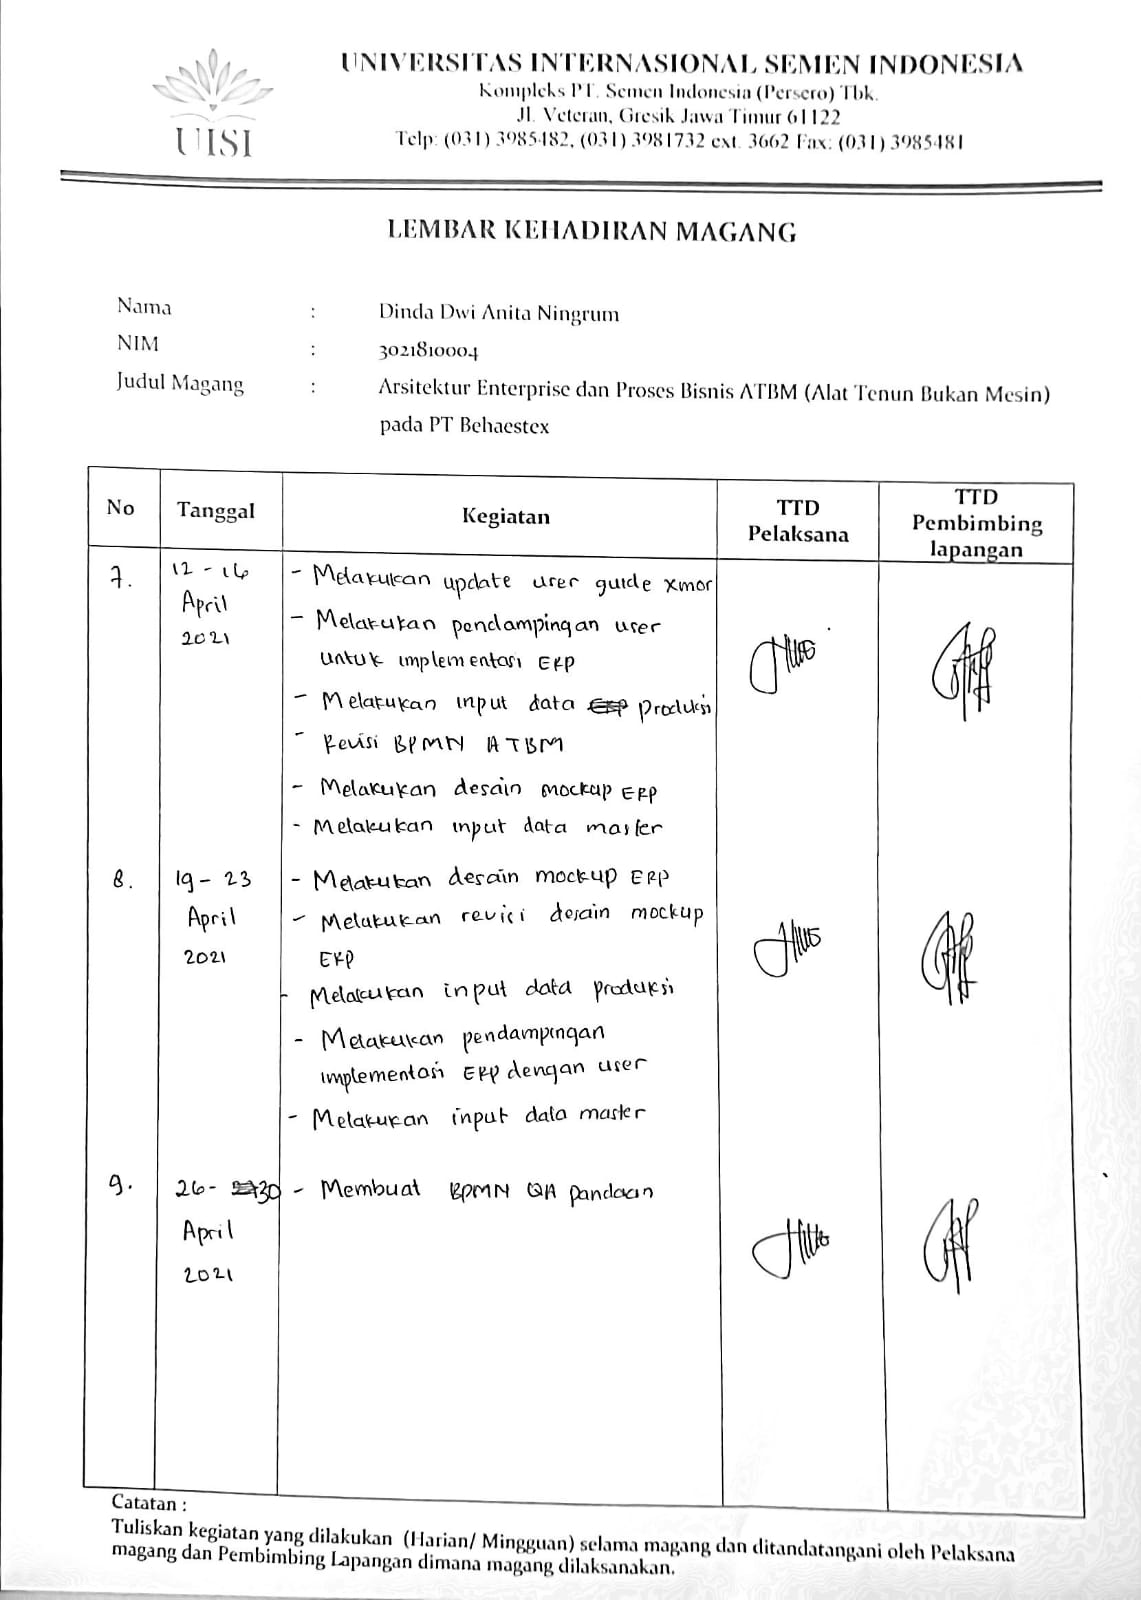 UISI
UNIVERSITAS INTERNASIONAL SEMEN INDONESIA
Kompleks PT. Semen Indonesia (Persero) Tbk.
Jl. Veteran, Gresik Jawa Timur 61122
Telp: (031) 3985482, (031) 3981732 ext. 3662 Fax: (031) 3985481
LEMBAR KEHADIRAN MAGANG
Nama : Dinda Dwi Anita Ningrum
NIM : 3021810004
Judul Magang : Arsitektur Enterprise dan Proses Bisnis ATBM (Alat Tenun Bukan Mesin)
pada PT Behaestex
No Tanggal Kegiatan TTD Pelaksana TTD Pembimbing lapangan
7. 12 - 16 April 2021
- Melakukan update user guide xmor
- Melakukan pendampingan user
untuk implementasi ERP
- Melakukan input data produksi
- Revisi BPMN ATBM
- Melakukan desain mockup ERP
- Melakukan input data master
8. 19 - 23 April 2021
- Melakukan desain mockup ERP
- Melakukan revisi desain mockup
ERP
- Melakukan input data produksi
- Melakukan pendampingan
implementasi ERP dengan user
- Melakukan input data master
9. 26 - 30 April 2021
- Membuat BPMN QA pandaan
Catatan :
Tuliskan kegiatan yang dilakukan (Harian/ Mingguan) selama magang dan ditandatangani oleh Pelaksana
magang dan Pembimbing Lapangan dimana magang dilaksanakan.